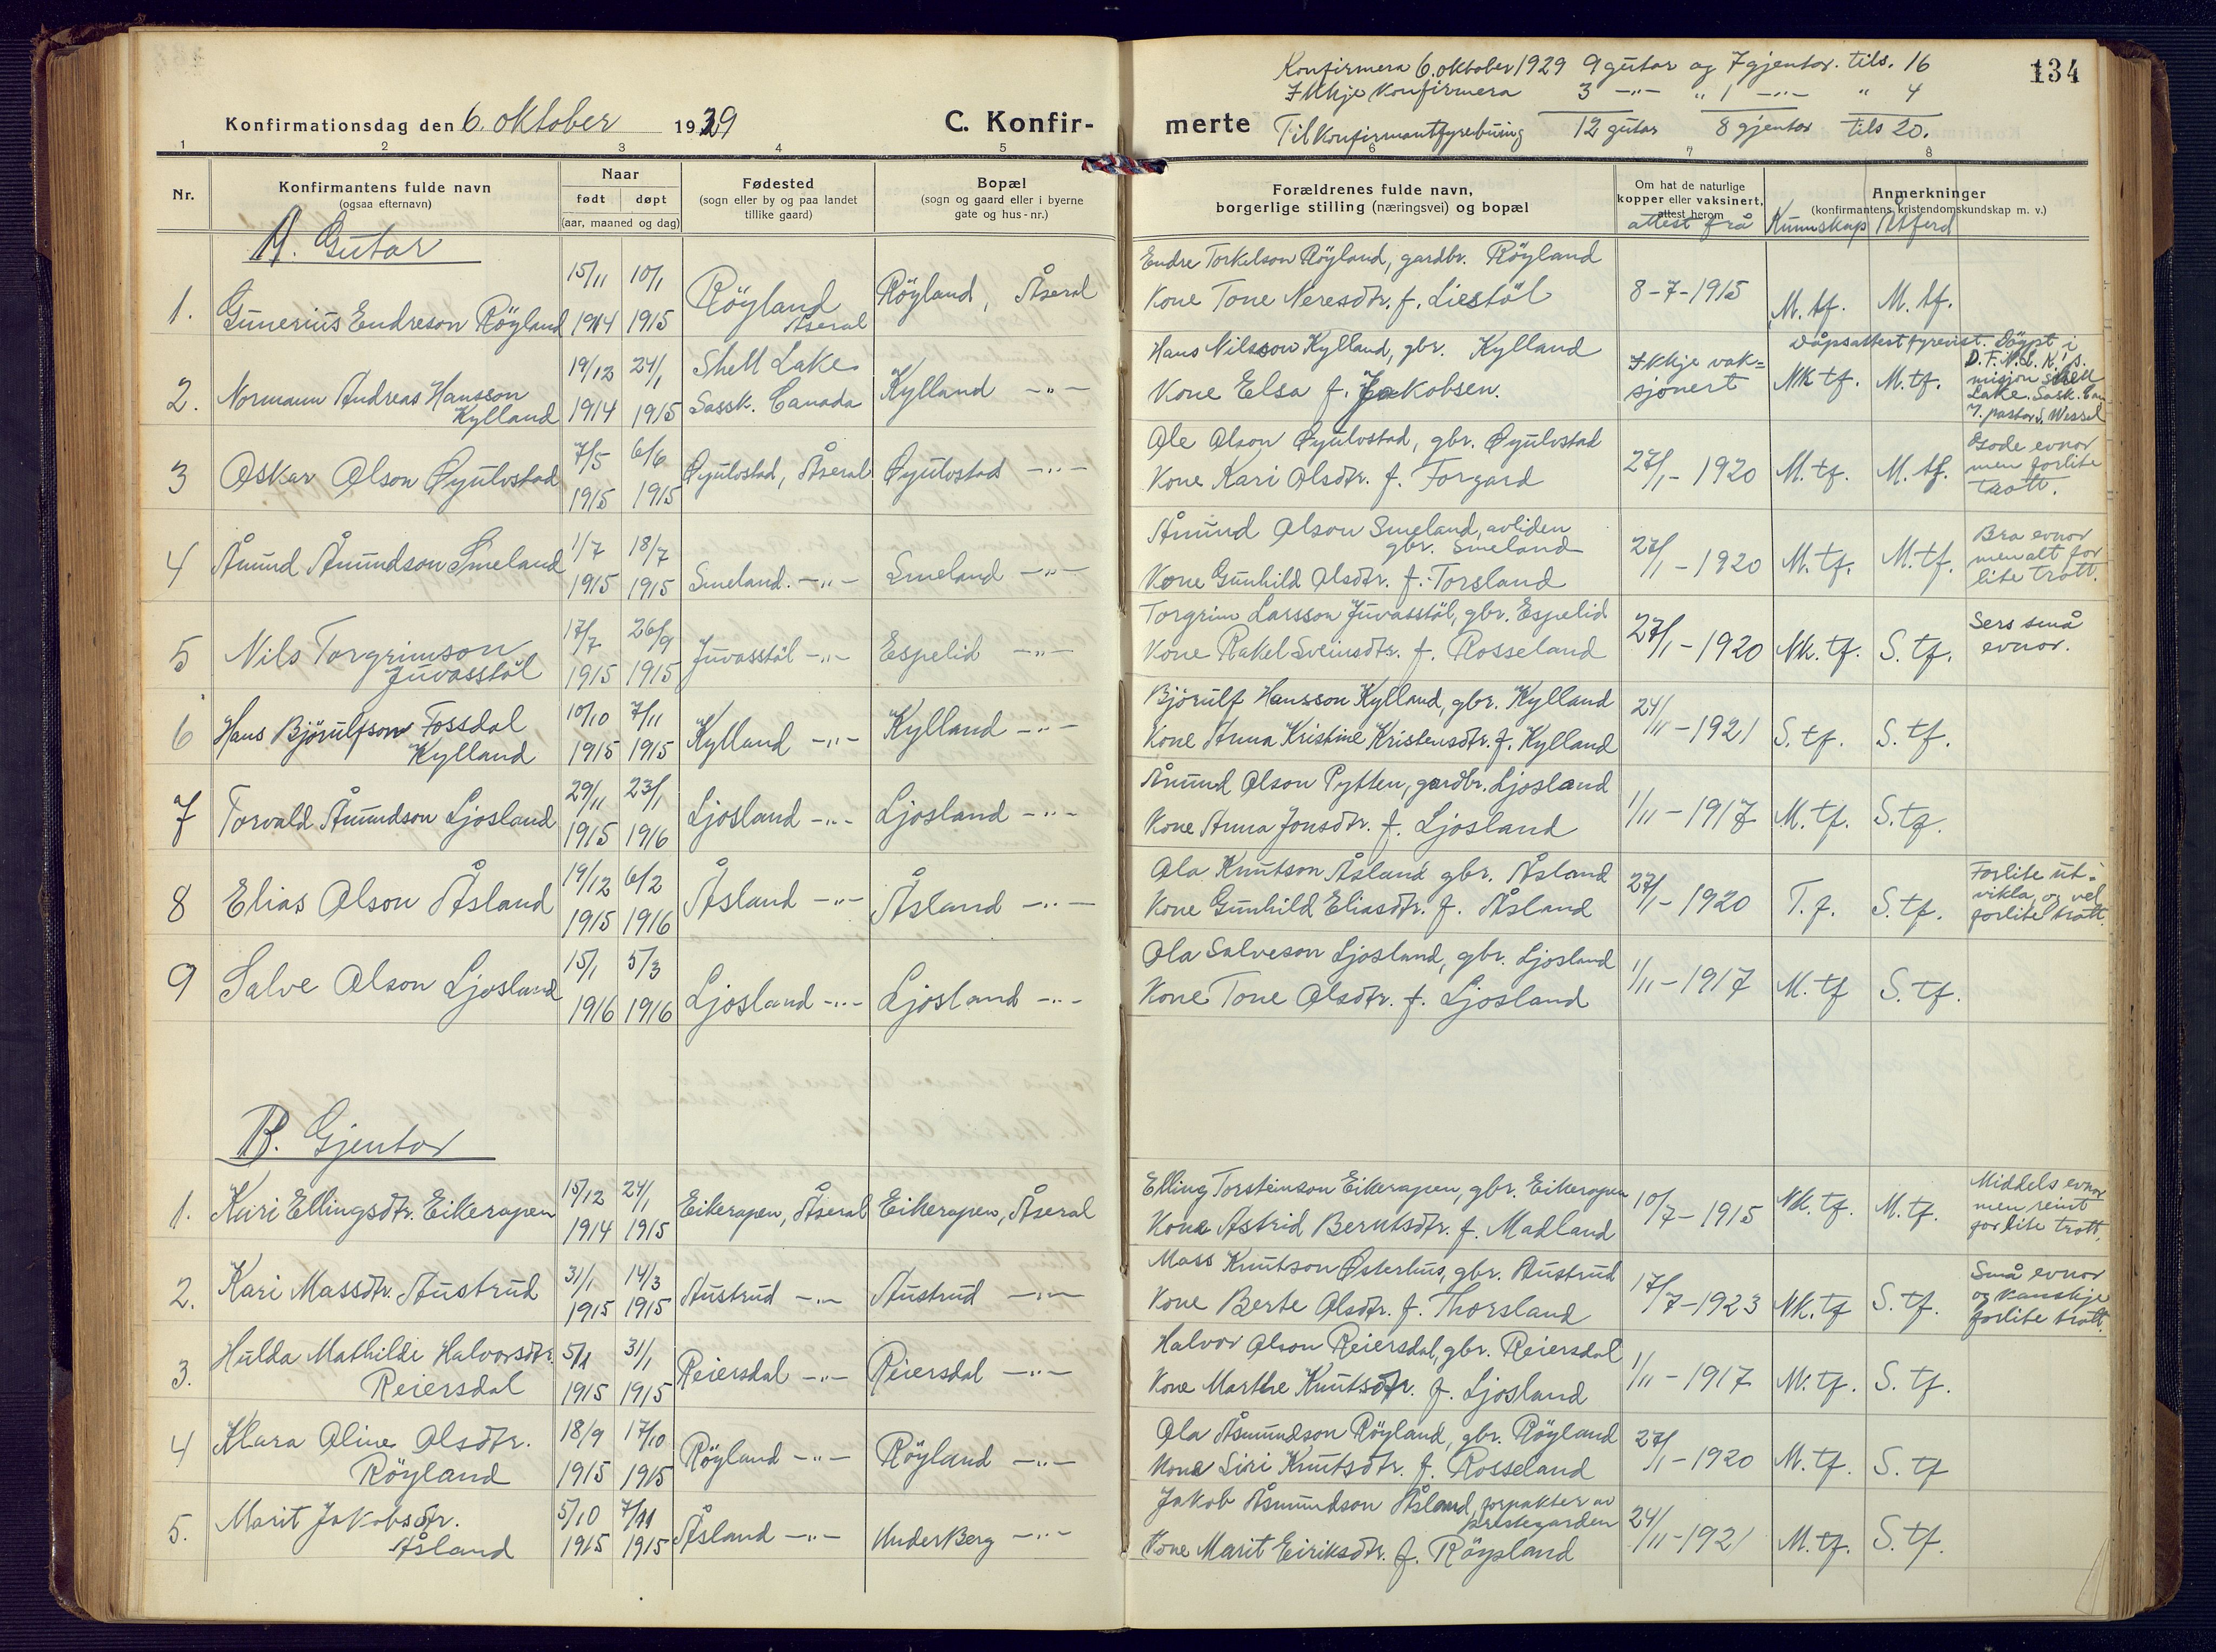 Konfirmera 6. oktober 1929 9 gutar og 7 gjentor. tils. 16
Ikkje konfirmera 3 -"- " 1 -"- " 4
Til konfirmantfyrebuing 12 gutar 8 gjentor tils 20.
134
Konfirmationsdag den 6. oktober 1929
C. Konfirmerte
1 2 3 4 5 6 7 8
Nr.
Konfirmantens fulde navn
(ogsaa efternavn)
Naar
født døpt
(aar, maaned og dag)
Fødested
(sogn eller by og paa landet
tillike gaard)
Bopæl
(sogn og gaard eller i byerne
gate og hus-nr.)
Forældrenes fulde navn,
borgerlige stilling (næringsvei) og bopæl
Om hat de naturlige
kopper eller vaksinert,
attest herom
attest frå
Anmerkninger
(konfirmantens kristendomskundskap m. v.)
Kunnskap Åtferd
A. Gutar
1. Gunerius Endreson Röyland
15/11 1914
10/1 1915
Röyland Åseral
Röyland, Åseral
Endre Torkelson Röyland, gardbr. Röyland
Kone Tone Neresdtr. f. Liestöl
8-7-1915
M. tf. M. tf.
2. Normann Andreas Hansson
Kylland
19/12 1914
24/1 1915
Shell Lake
Sassk. Canada
Kylland -"-
Hans Nilsson Kylland, gbr. Kylland
Kone Elsa f. Jakobsen.
Ikkje vak=
sjonert
Nk tf. M. tf.
Dåpsattest fyrevist. Döypt i
D. F. N. L. K.'s.
misjon Shell
Lake. Sask. Can
v. pastor S. Wessel
3 Oskar Olson Øyulvstad
7/5 1915
6/6 1915
Øyulvstad, Åseral
Øyulvstad -"-
Ole Olson Øyulvstad, gbr. Øyulvstad
Kone Kari Olsdtr. f. Forgard
27/1 - 1920
M. tf. M. tf.
Gode evnor
men forlite
trott.
4 Åmund Åmundson Smeland
1/7 1915
18/7 1915
Smeland. -"-
Smeland -"-
Åmund Olson Smeland, avliden
gbr. Smeland
Kone Gunhild Olsdtr. f. Torsland
27/1 - 1920
M. tf. M. tf.
Bra evnor
men alt for
lite trott.
5 Nils Torgrimson
Juvasstöl
17/7 1915
26/9 1915
Juvasstöl -"-
Espelid -"-
Torgrim Larsson Juvasstöl, gbr. Espelid
Kone Rakel Sveinsdtr. f. Rosseland
27/1 - 1920
Nk. tf. S. tf.
Sers små
evnor.
6 Hans Björulfson Fossdal
Kylland
10/10 1915
7/11 1915
Kylland -"-
Kylland -"-
Björulf Hansson Kylland, gbr. Kylland
Kone Anna Kristine Kristensdtr. f. Kylland
24/11 - 1921
S. tf. S. tf.
7 Torvald Åmundson Ljosland
29/11 1915
23/1 1916
Ljosland -"-
Ljosland -"-
Åmund Olson Pytten, gardbr. Ljosland
Kone Anna Jonsdtr. f. Ljosland
1/11 - 1917
M. tf. S. tf.
8 Elias Olson Åsland
19/12 1915
6/2 1916
Åsland -"-
Åsland -"-
Ola Knutson Åsland gbr. Åsland
Kone Gunhild Eliasdtr. f. Åsland
27/1 - 1920
T. f. S. tf.
Forlite ut-
vikla, og vel
forlite trott.
9 Salve Olson Ljosland
15/1 1916
5/3 1916
Ljosland -"-
Ljosland -"-
Ola Salveson Ljosland, gbr. Ljosland
Kone Tone Olsdtr. f. Ljosland
1/11 - 1917
M. tf S. tf.
B. Gjentor
1. Kari Ellingsdtr. Eikerapen
15/12 1914
24/1 1915
Eikerapen, Åseral
Eikerapen, Åseral
Elling Torsteinson Eikerapen, gbr. Eikerapen
Kone Astrid Berntsdtr. f. Madland
10/7 - 1915
Nk. tf. M. tf.
Middels evnor
men reint
forlite trott.
2. Kari Massdtr. Austrud
31/1 1915
14/3 1915
Austrud -"-
Austrud -"-
Mass Knutson Østerhus, gbr. Austrud
Kone Berte Olsdtr. f. Thorsland
17/7 - 1923
Nk. tf S. tf.
Små evnor
og kanskje
forlite trott.
3. Hulda Mathilde Halvorsdtr.
Reiersdal
5/1 1915
31/1 1915
Reiersdal -"-
Reiersdal -"-
Halvor Olson Reiersdal, gbr. Reiersdal
Kone Marthe Knutsdtr. f. Ljosland
1/11 - 1917
M. tf. S. tf.
4 Klara Oline Olsdtr.
Röyland
18/9 1915
17/10 1915
Röyland -"-
Röyland -"-
Ola Åsmundson Röyland, gbr. Röyland
Kone Siri Knutsdtr. f. Rosseland
27/1 - 1920
M. tf. S. tf
5. Marit Jakobsdtr.
Åsland
5/10 1915
7/11 1915
Åsland -"-
Under Berg -"-
Jakob Åsmundson Åsland, forpakter av
prestegarden
Kone Marit Eiriksdtr. f. Röysland
24/11 - 1921
M. tf. S. tf.